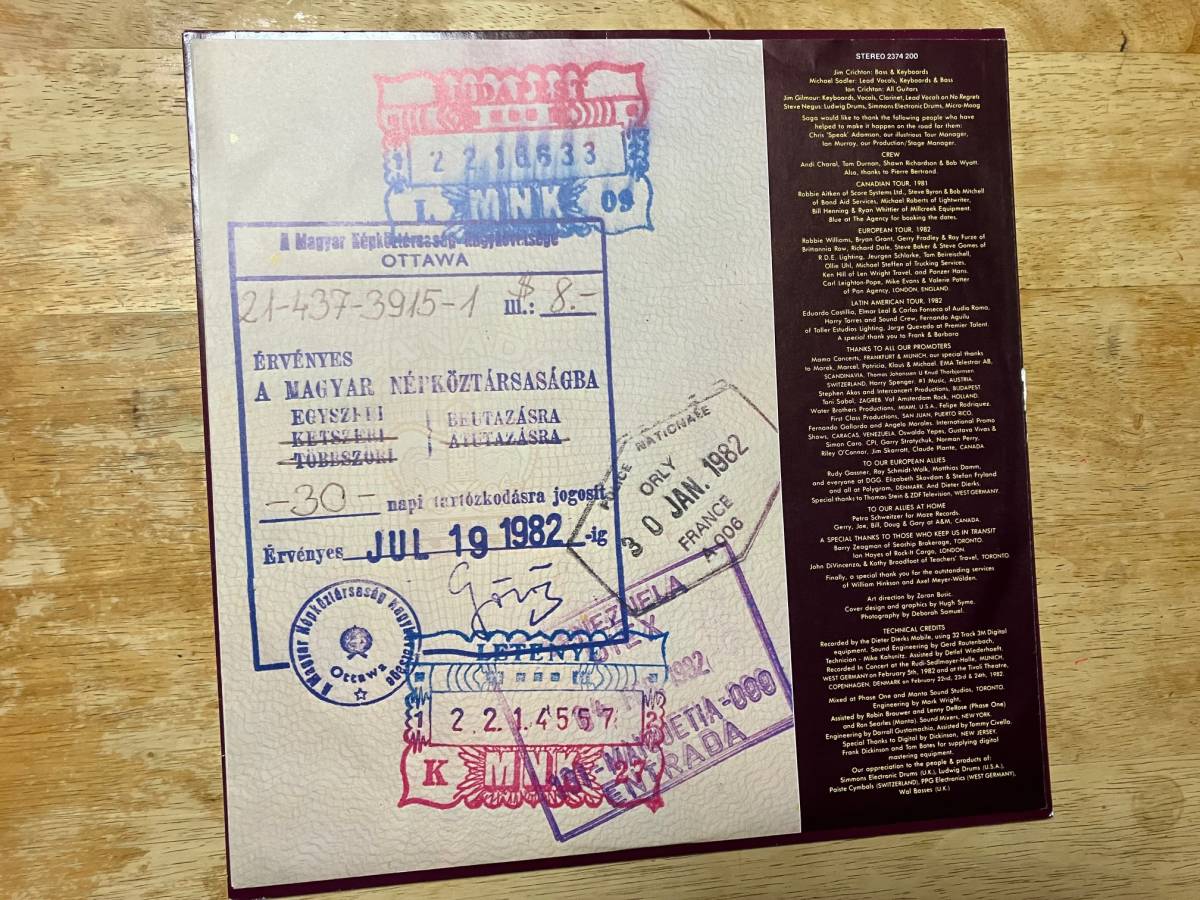 BUDAPEST
1 2 2 1 6 6 3 3
I. MNK 09
A Magyar Népköztársaság Nagykövetsége
OTTAWA
21-437-3915-1 Ill.: $ 8.-
ÉRVÉNYES
A MAGYAR NÉPKÖZTÁRSASÁGBA
EGYSZERI BEUTAZÁSRA
KÉTSZERI ÁTUTAZÁSRA
TÖBBSZÖRI
-30- napi tartózkodásra jogosít
Érvényes JUL 19 1982 -ig
A Magyar Népköztársaság Nagykövetsége
Ottawa
POLICE NATIONALE
ORLY
30 JAN. 1982
FRANCE
A 006
VENEZUELA
1982
101-MAIQUETIA-099
ENTRADA
LETENYE
1 2 2 1 4 5 5 7 2
K MNK 27
STEREO 2374 200
Jim Crichton: Bass & Keyboards
Michael Sadler: Lead Vocals, Keyboards & Bass
Ian Crichton: All Guitars
Jim Gilmour: Keyboards, Vocals, Clarinet, Lead Vocals on No Regrets
Steve Negus: Ludwig Drums, Simmons Electronic Drums, Micro-Moog
Saga would like to thank the following people who have
helped to make it happen on the road for them:
Chris 'Speak' Adamson, our illustrious Tour Manager,
Ian Murray, our Production/Stage Manager.
CREW
Andi Charal, Tom Durnan, Shawn Richardson & Bob Wyatt.
Also, thanks to Pierre Bertrand.
CANADIAN TOUR, 1981
Robbie Aitken of Score Systems Ltd., Steve Byron & Bob Mitchell
of Bond Aid Services, Michael Roberts of Lightwriter,
Bill Henning & Ryan Whittier of Millcreek Equipment.
Blue at The Agency for booking the dates.
EUROPEAN TOUR, 1982
Robbie Williams, Bryan Grant, Gerry Fradley & Roy Furse of
Brittannia Row, Richard Dale, Steve Baker & Steve Gomes of
R.D.E. Lighting, Jeurgen Schlorke, Tom Beireischell,
Ollie Uhl, Michael Steffen of Trucking Services,
Ken Hill of Len Wright Travel, and Panzer Hans.
Carl Leighton-Pope, Mike Evans & Valerie Potter
of Pan Agency, LONDON, ENGLAND.
LATIN AMERICAN TOUR, 1982
Eduardo Castillio, Elmar Leal & Carlos Fonseca of Audio Roma,
Harry Torres and Sound Crew, Fernando Aguilu
of Taller Estudios Lighting, Jorge Quevedo at Premier Talent.
A special thank you to Frank & Barbara
THANKS TO ALL OUR PROMOTERS
Mama Concerts, FRANKFURT & MUNICH, our special thanks
to Marek, Marcel, Patricia, Klaus & Michael. EMA Telestar AB,
SCANDINAVIA, Thomas Johanssen U Knud Thorbjornsen
SWITZERLAND, Harry Spenger. #1 Music, AUSTRIA.
Stephen Akos and Interconcert Productions, BUDAPEST
Toni Sabol, ZAGREB. Vaf Amsterdam Rock, HOLLAND.
Water Brothers Productions, MIAMI, U.S.A., Felipe Rodriquez.
First Class Productions, SAN JUAN, PUERTO RICO.
Fernando Gallardo and Angelo Morales. International Promo
Shows, CARACAS, VENEZUELA, Oswaldo Yepes, Gustavo Vivas &
Simon Caro. CPI, Gary Stratychuk, Norman Perry,
Riley O'Connor, Jim Skarratt, Claude Plante, CANADA
TO OUR EUROPEAN ALLIES
Rudy Gassner, Ray Schmidt-Walk, Matthias Damm,
and everyone at DGG. Elizabeth Skovdam & Stefan Fryland
and all at Polygram, DENMARK. And Dieter Dierks.
Special thanks to Thomas Stein & ZDF Television, WEST GERMANY.
TO OUR ALLIES AT HOME
Petra Schweitzer for Maze Records.
Gerry, Joe, Bill, Doug & Gary at A&M, CANADA.
A SPECIAL THANKS TO THOSE WHO KEEP US IN TRANSIT
Barry Zeagman of Seaship Brokerage, TORONTO.
Ian Hayes of Rock-It Cargo, LONDON
John DiVincenzo, & Kathy Broadfoot of Teachers' Travel, TORONTO.
Finally, a special thank you for the outstanding services
of William Hinkson and Axel Meyer-Wölden.
Art direction by Zoran Busic.
Cover design and graphics by Hugh Syme.
Photography by Deborah Samuel.
TECHNICAL CREDITS
Recorded by the Dieter Dierks Mobile, using 32 Track 3M Digital
equipment. Sound Engineering by Gerd Rautenbach,
Technician - Mike Kahunitz. Assisted by Detlef Wiederhoeft.
Recorded In Concert at the Rudi-Sedlmayer-Halle, MUNICH,
WEST GERMANY on February 5th, 1982 and at the Tivoli Theatre,
COPENHAGEN, DENMARK on February 22nd, 23rd & 24th, 1982.
Mixed at Phase One and Manta Sound Studios, TORONTO.
Engineering by Mark Wright,
Assisted by Robin Brouwer and Lenny DeRose (Phase One)
and Ron Searles (Manta). Sound Mixers, NEW YORK.
Engineering by Darroll Gustamachio, Assisted by Tommy Civello.
Special Thanks to Digital by Dickinson, NEW JERSEY.
Frank Dickinson and Tom Bates for supplying digital
mastering equipment.
Our appreciation to the people & products of:
Simmons Electronic Drums (U.K.), Ludwig Drums (U.S.A.),
Paiste Cymbals (SWITZERLAND), PPG Electronics (WEST GERMANY),
Wal Basses (U.K.)